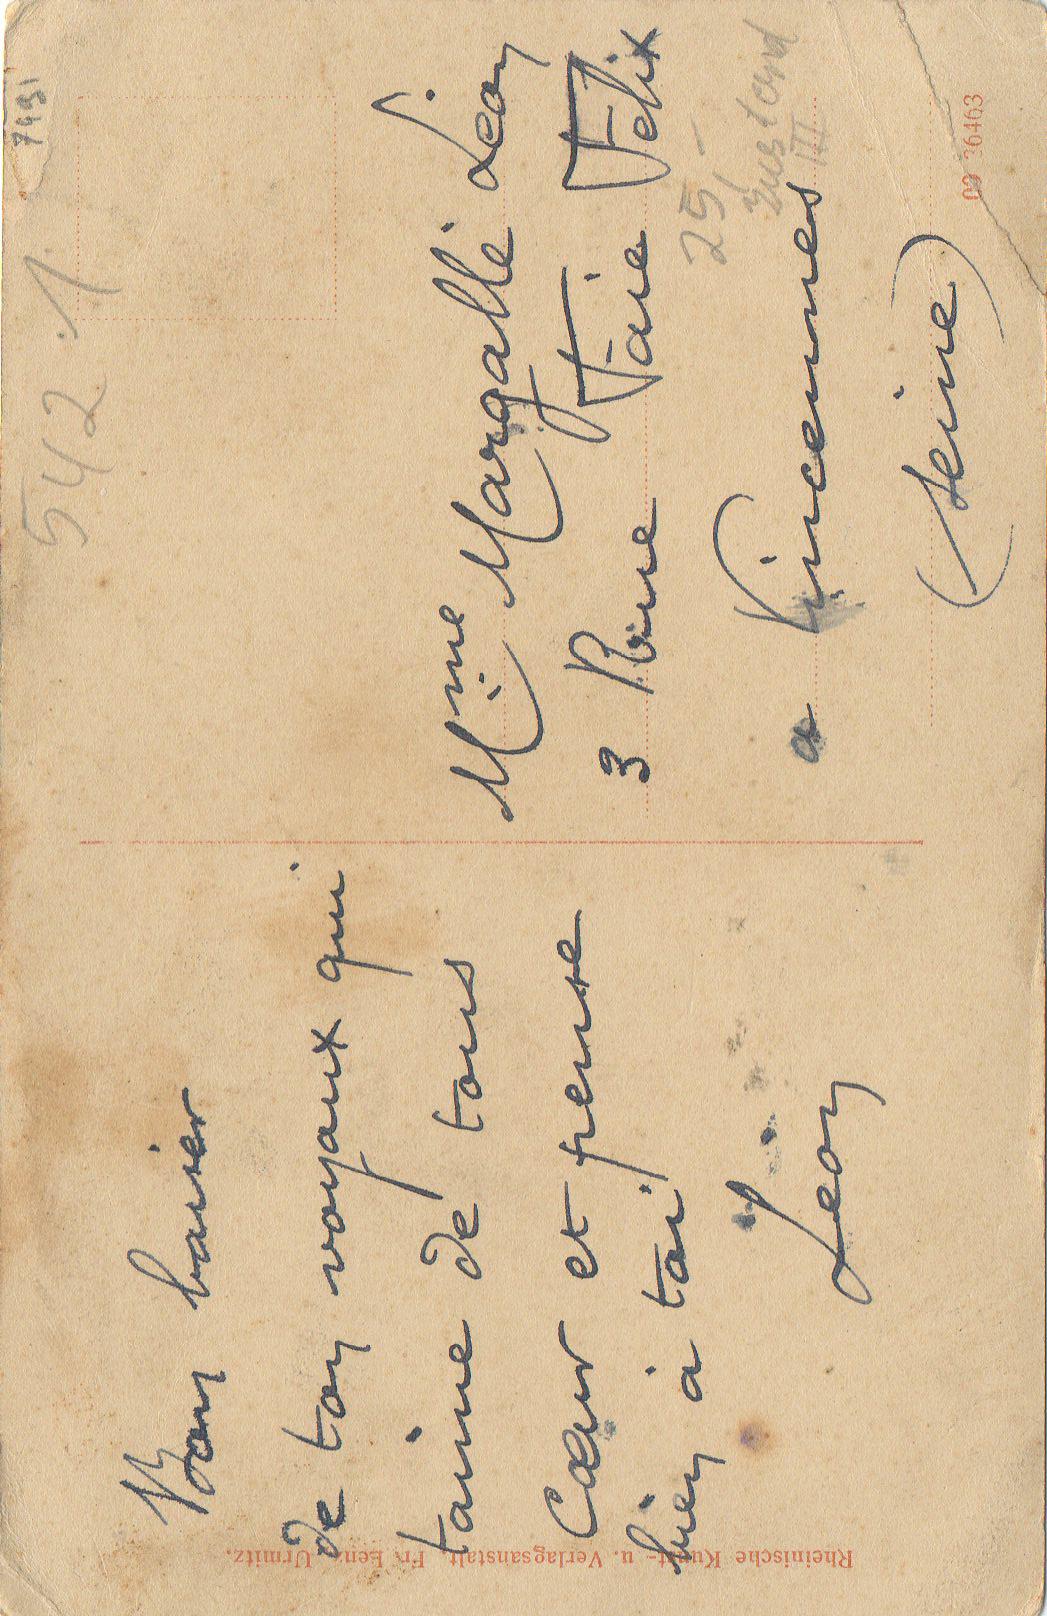 Bon baiser
de ton voyaux qui
taime de tous
Cœur et pense
bien à toi
Léon
Mme Margallé Léon
3 Rue Faie Félix
a Vincennes
(Seine)
542 1.
7491
25-
Zustand
III
09 36463
Rheinische Kunst- u. Verlagsanstalt, Fr. Lenz, Urmitz.